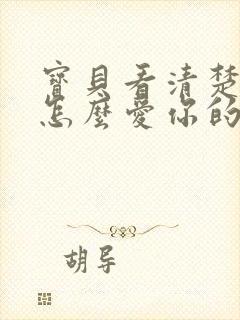 寶貝看清楚
怎麼愛你的
胡导